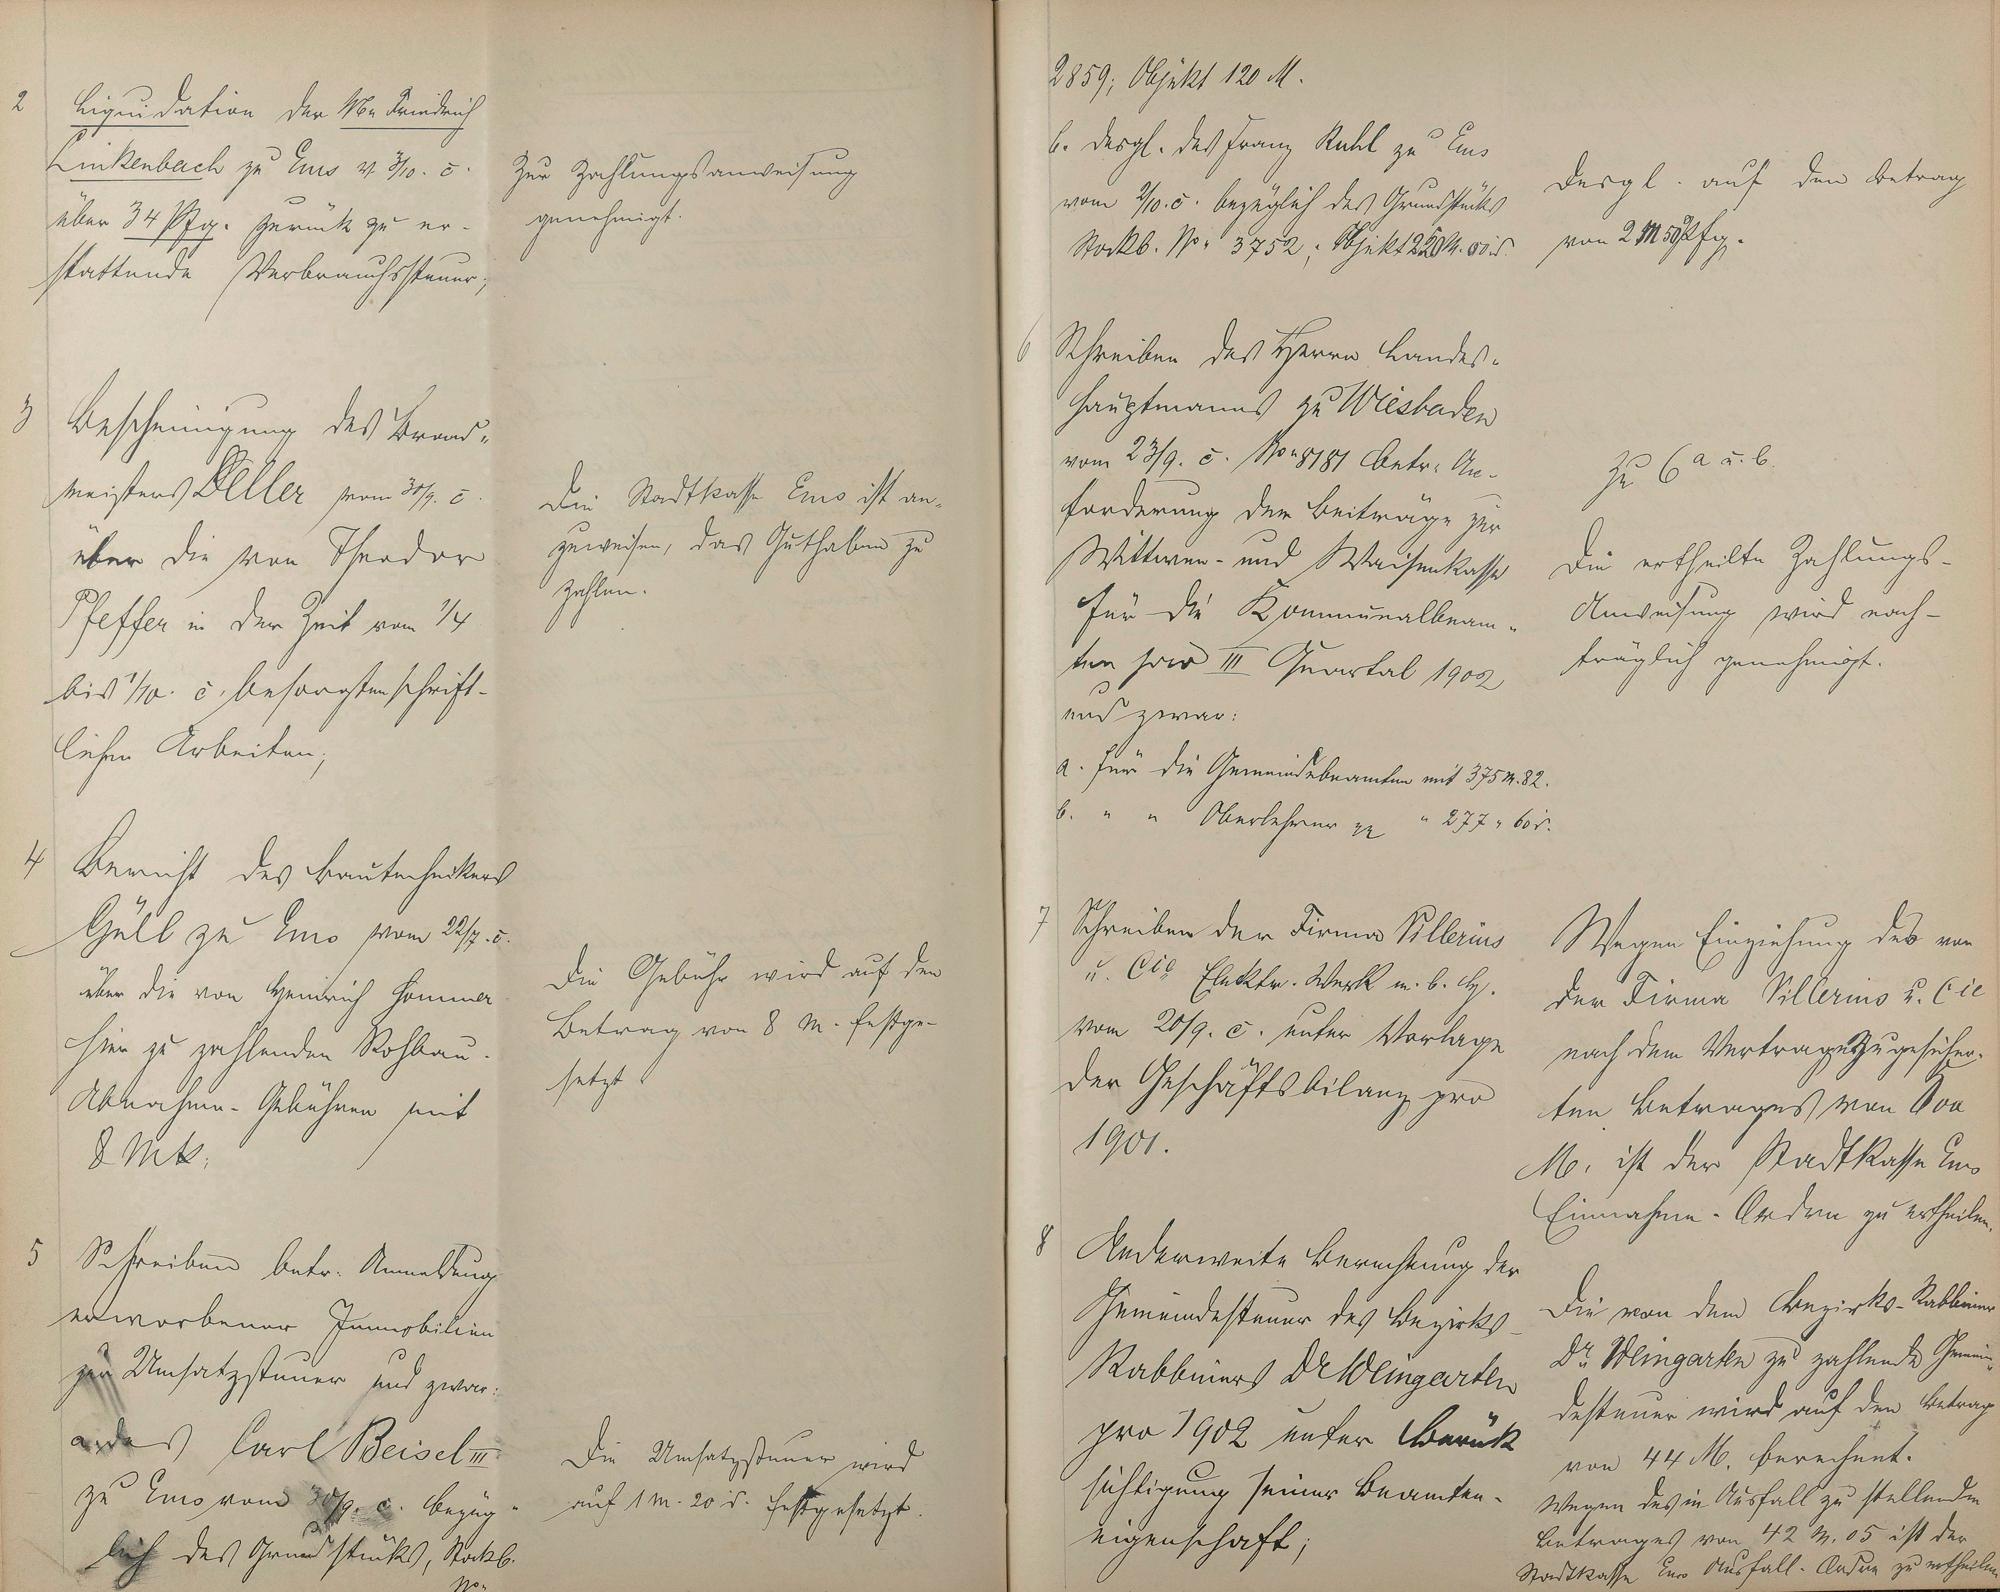 2 Liquidation der Wwe Friedrich
Linkenbach zu Ems v. 3/10. c.
über 34 Pfg. zurück zu er-
stattende Verbrauchssteuer;
Zur Zahlungsanweisung
genehmigt.
3 Bescheinigung des Brand-
meisters Deller vom 30/9. c.
über die von Theodor
Pfeffer in der Zeit vom 1/4
bis 1/10. c. besorgten schrift-
lichen Arbeiten;
Die Stadtkasse Ems ist an-
zuweisen, das Guthaben zu
zahlen.
4 Bericht des Bautechnikers
Güll zu Ems vom 22/7. c.
über die von Heinrich Hommer
hier zu zahlenden Rohbau-
Abnahme-Gebühren mit
8 Mk.
Die Gebühr wird auf den
Betrag von 8 M. festge-
setzt
5 Schreiben betr. Anmeldung
erworbener Immobilien
zur Umsatzsteuer und zwar:
a. des Carl Beisel III
zu Ems vom 30/9. c. bezüg-
lich des Grundstücks, Stockb.
No.
Die Umsatzsteuer wird
auf 1 M. 20 d. festgesetzt.
2859; Objekt 120 M.
b. desgl. des Franz Ruhl zu Ems
vom 2/10. c. bezüglich des Grundstücks
Stockb. No. 3752; Objekt
Desgl. auf den Betrag
von 2 M 50 Pfg.
6 Schreiben des Herrn Landes-
hauptmanns zu Wiesbaden
vom 23/9. c. No. 8181 betr. An-
forderung der Beiträge zur
Wittwen- und Waisenkasse
für die Kommunalbeam-
ten pro III Quartal 1902
und zwar:
a. für die Gemeindebeamten mit 375 M. 82.
b. " " Oberlehrer " 277 " 60 d.
Zu 6 a u. b.
Die ertheilte Zahlungs-
Anweisung wird nach-
träglich genehmigt.
7 Schreiben der Firma Villerius
u. Cie Elektr. Werk m. b. H.
vom 20/9. c. unter Vorlage
der Geschäftsbilanz pro
1901.
Wegen Einziehung des von
der Firma Villerius u. Cie
nach dem Vertrage zugesicher-
ten Betrages von
M. ist der Stadtkasse Ems
Einnahme-Ordre zu ertheilen.
8 Anderweite Berechnung der
Gemeindesteuer des Bezirks-
Rabbiners Dr Weingarten
pro 1902 unter Berück
sichtigung seiner Beamten-
eigenschaft;
Die von dem Bezirks-Rabbiner
Dr Weingarten zu zahlende Gemein-
desteuer wird auf den Betrag
von 44 M. berechnet.
Wegen des in Ausfall zu stellenden
Betrages von 42 M. 05 ist der
Stadtkasse Ems Ausfall-Ordre zu ertheilen